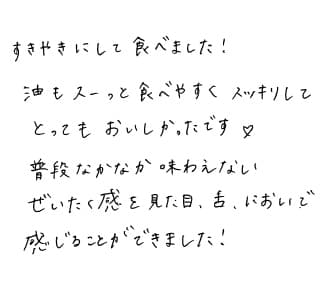 すきやきにして食べました!
油もスーっと食べやすくスッキリして
とってもおいしかったです♡
普段なかなか味わえない
ぜいたく感を見た目、舌、においで
感じることができました!